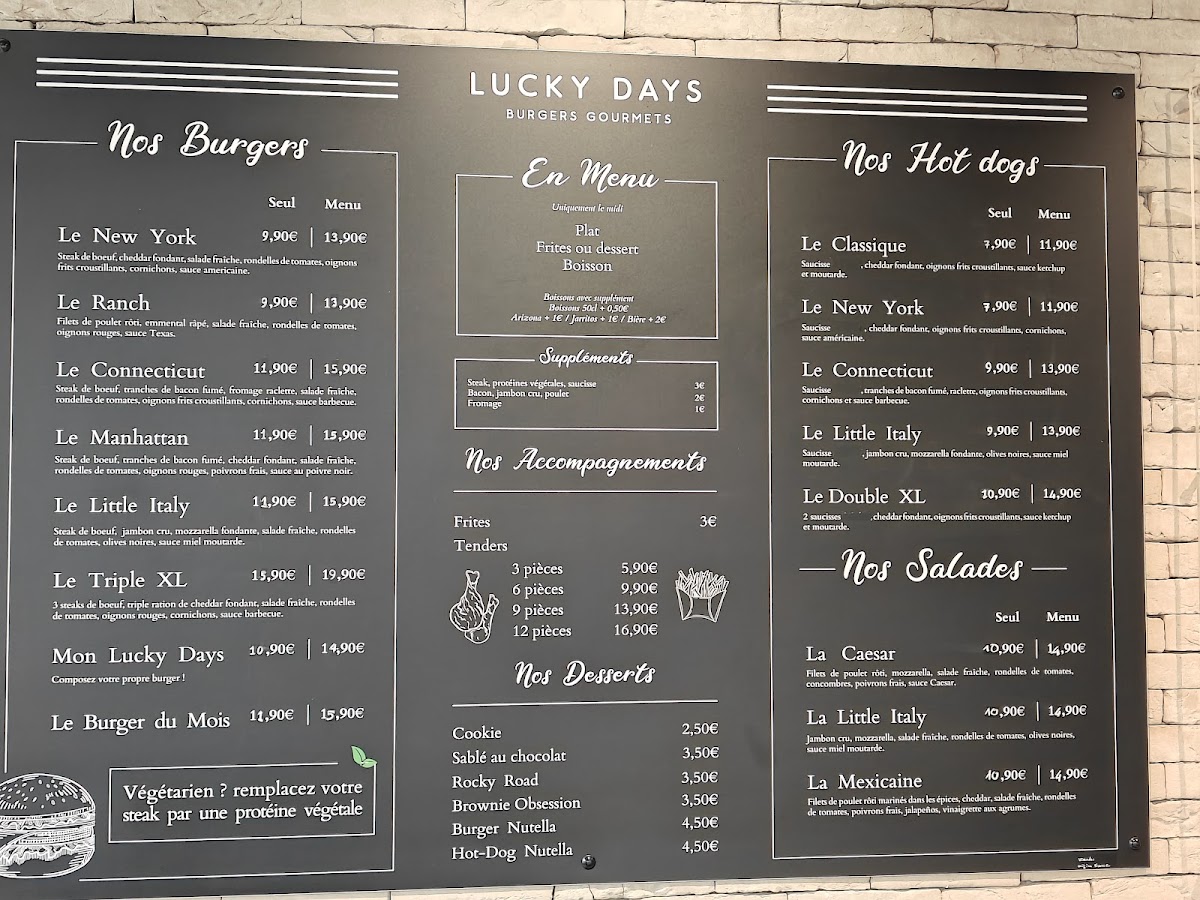 LUCKY DAYS
BURGERS GOURMETS
Nos Burgers
Seul Menu
Le New York 9,90€ | 13,90€
Steak de boeuf, cheddar fondant, salade fraîche, rondelles de tomates, oignons
frits croustillants, cornichons, sauce americaine.
Le Ranch 9,90€ | 13,90€
Filets de poulet rôti, emmental râpé, salade fraîche, rondelles de tomates,
oignons rouges, sauce Texas.
Le Connecticut 11,90€ | 15,90€
Steak de boeuf, tranches de bacon fumé, fromage raclette, salade fraîche,
rondelles de tomates, oignons frits croustillants, cornichons, sauce barbecue.
Le Manhattan 11,90€ | 15,90€
Steak de boeuf, tranches de bacon fumé, cheddar fondant, salade fraîche,
rondelles de tomates, oignons rouges, poivrons frais, sauce au poivre noir.
Le Little Italy 11,90€ | 15,90€
Steak de boeuf, jambon cru, mozzarella fondante, salade fraîche, rondelles
de tomates, olives noires, sauce miel moutarde.
Le Triple XL 15,90€ | 19,90€
3 steaks de boeuf, triple ration de cheddar fondant, salade fraîche, rondelles
de tomates, oignons rouges, cornichons, sauce barbecue.
Mon Lucky Days 10,90€ | 14,90€
Composez votre propre burger !
Le Burger du Mois 11,90€ | 15,90€
Végétarien ? remplacez votre
steak par une protéine végétale
En Menu
Uniquement le midi
Plat
Frites ou dessert
Boisson
Boissons avec supplément
Boissons 50cl + 0,50€
Arizona + 1€ / Jarritos + 1€ / Bière + 2€
Suppléments
Steak, protéines végétales, saucisse 3€
Bacon, jambon cru, poulet 2€
Fromage 1€
Nos Accompagnements
Frites 3€
Tenders
3 pièces 5,90€
6 pièces 9,90€
9 pièces 13,90€
12 pièces 16,90€
Nos Desserts
Cookie 2,50€
Sablé au chocolat 3,50€
Rocky Road 3,50€
Brownie Obsession 3,50€
Burger Nutella 4,50€
Hot-Dog Nutella 4,50€
Nos Hot dogs
Seul Menu
Le Classique 7,90€ | 11,90€
Saucisse , cheddar fondant, oignons frits croustillants, sauce ketchup
et moutarde.
Le New York 7,90€ | 11,90€
Saucisse , cheddar fondant, oignons frits croustillants, cornichons,
sauce américaine.
Le Connecticut 9,90€ | 13,90€
Saucisse , tranches de bacon fumé, raclette, oignons frits croustillants,
cornichons et sauce barbecue.
Le Little Italy 9,90€ | 13,90€
Saucisse , jambon cru, mozzarella fondante, olives noires, sauce miel
moutarde.
Le Double XL 10,90€ | 14,90€
2 saucisses , cheddar fondant, oignons frits croustillants, sauce ketchup
et moutarde.
Nos Salades
Seul Menu
La Caesar 10,90€ | 14,90€
Filets de poulet rôti, mozzarella, salade fraîche, rondelles de tomates,
concombres, poivrons frais, sauce Caesar.
La Little Italy 10,90€ | 14,90€
Jambon cru, mozzarella, salade fraîche, rondelles de tomates, olives noires,
sauce miel moutarde.
La Mexicaine 10,90€ | 14,90€
Filets de poulet rôti marinés dans les épices, cheddar, salade fraîche, rondelles
de tomates, poivrons frais, jalapeños, vinaigrette aux agrumes.